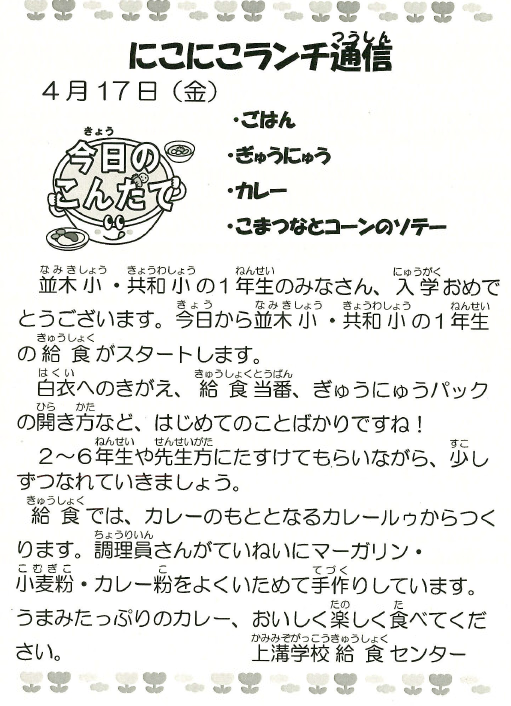 にこにこランチ通信
つうしん
4月17日（金）
きょう
今日の
こんだて
・ごはん
・ぎゅうにゅう
・カレー
・こまつなとコーンのソテー
なみきしょう きょうわしょう ねんせい にゅうがく
並木小・共和小の１年生のみなさん、入学おめで
きょう なみきしょう きょうわしょう ねんせい
とうございます。今日から並木小・共和小の１年生
きゅうしょく
の給食がスタートします。
はくい きゅうしょくとうばん
白衣へのきがえ、給食当番、ぎゅうにゅうパック
ひら かた
の開き方など、はじめてのことばかりですね！
ねんせい せんせいがた すこ
２～６年生や先生方にたすけてもらいながら、少し
ずつなれていきましょう。
きゅうしょく
給食では、カレーのもととなるカレールゥからつく
ちょうりいん
ります。調理員さんがていねいにマーガリン・
こむぎこ こ てづく
小麦粉・カレー粉をよくいためて手作りしています。
たの た
うまみたっぷりのカレー、おいしく楽しく食べてくだ
かみみぞがっこうきゅうしょく
さい。 上溝学校給食センター